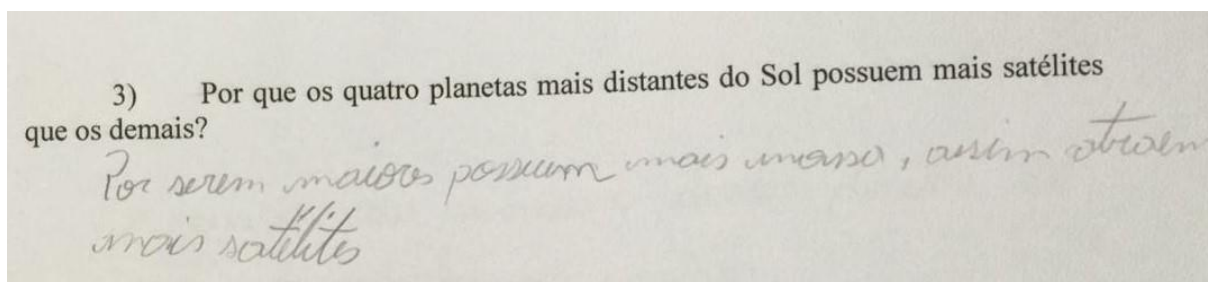 3) Por que os quatro planetas mais distantes do Sol possuem mais satélites
que os demais?
Por serem maiores possuem mais massa, assim atraem
mais satélites